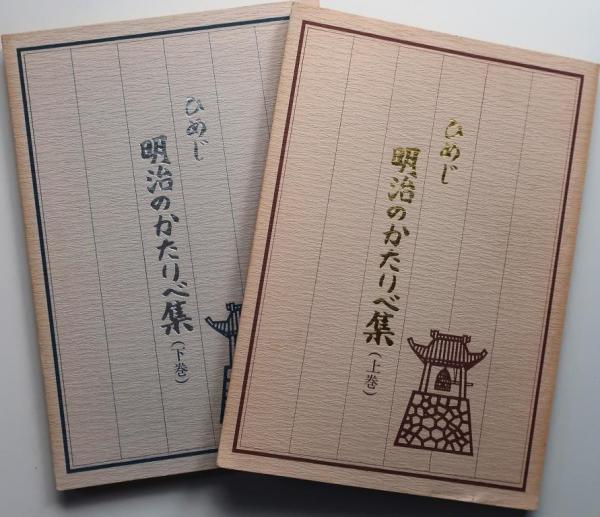 ひめじ
明治のかたりべ集
(上巻)
ひめじ
明治のかたりべ集
(下巻)